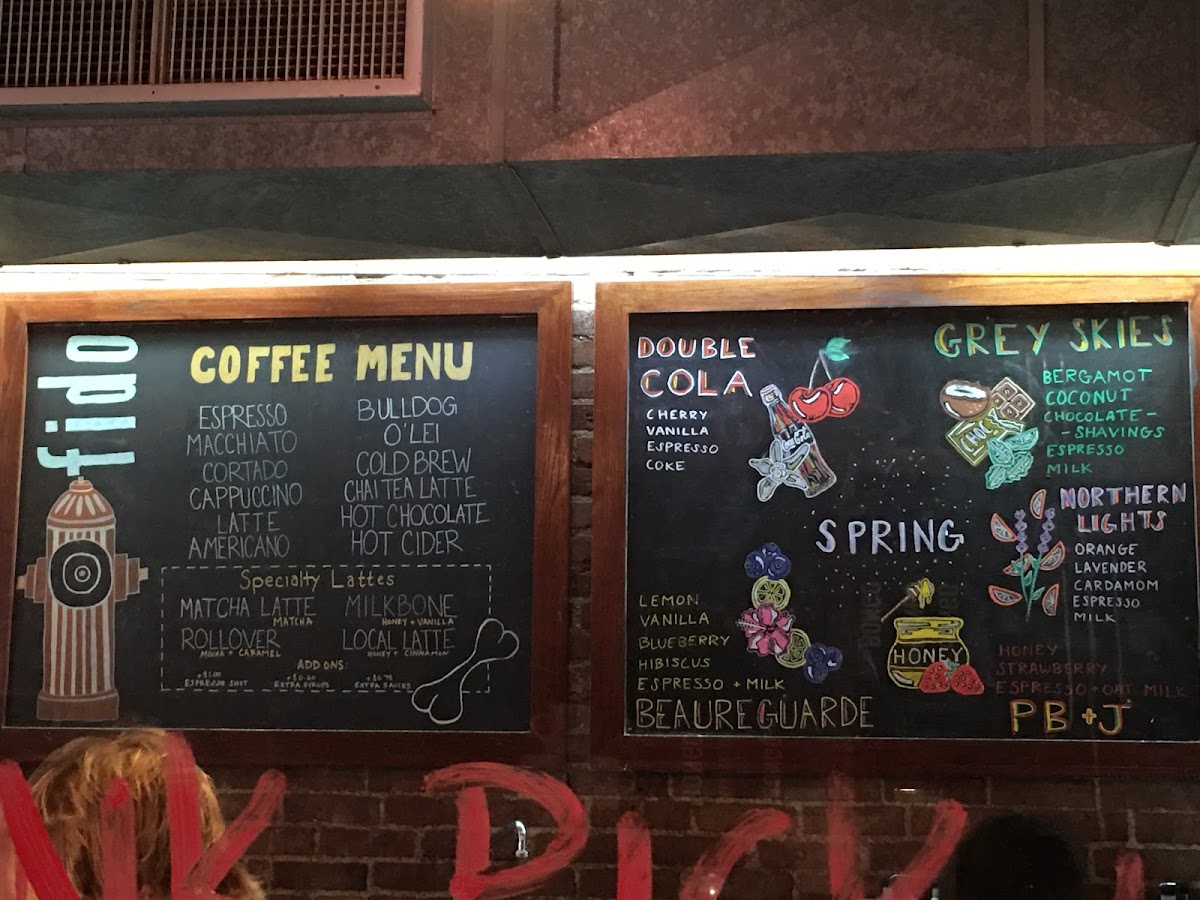 fido
COFFEE MENU
ESPRESSO
MACCHIATO
CORTADO
CAPPUCCINO
LATTE
AMERICANO
BULLDOG
O'LEI
COLD BREW
CHAI TEA LATTE
HOT CHOCOLATE
HOT CIDER
Specialty Lattes
MATCHA LATTE
MATCHA
MILKBONE
HONEY + VANILLA
ROLLOVER
MOCHA + CARAMEL
LOCAL LATTE
HONEY + CINNAMON
ADD ONS:
+$1.00
ESPRESSO SHOT
+$0.60
EXTRA SYRUPS
+$0.75
EXTRA SAUCES
DOUBLE
COLA
CHERRY
VANILLA
ESPRESSO
COKE
Coca-Cola
GREY SKIES
BERGAMOT
COCONUT
CHOCOLATE-
-SHAVINGS
ESPRESSO
MILK
CHOC
SPRING
NORTHERN
LIGHTS
ORANGE
LAVENDER
CARDAMOM
ESPRESSO
MILK
LEMON
VANILLA
BLUEBERRY
HIBISCUS
ESPRESSO + MILK
BEAUREGUARDE
HONEY
HONEY
STRAWBERRY
ESPRESSO + OAT MILK
PB+J